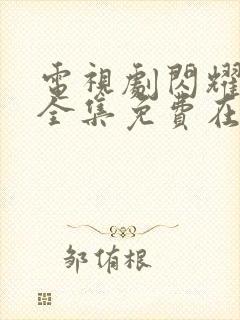 電視劇閃耀
全集免費在
邹侑根